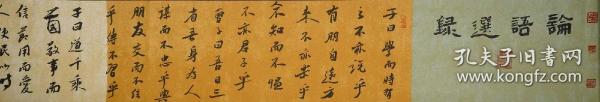 論語選録
子曰學而時習
之不亦説乎
有朋自遠方
来不亦樂乎
人不知而不愠
不亦君子乎
曾子曰吾日三
省吾身為人
謀而不忠乎與
朋友交而不信
乎傳不習乎
子曰道千乘
之國敬事而
信節用而愛
人使民以時
孔夫子旧书网
book.kongfz.com